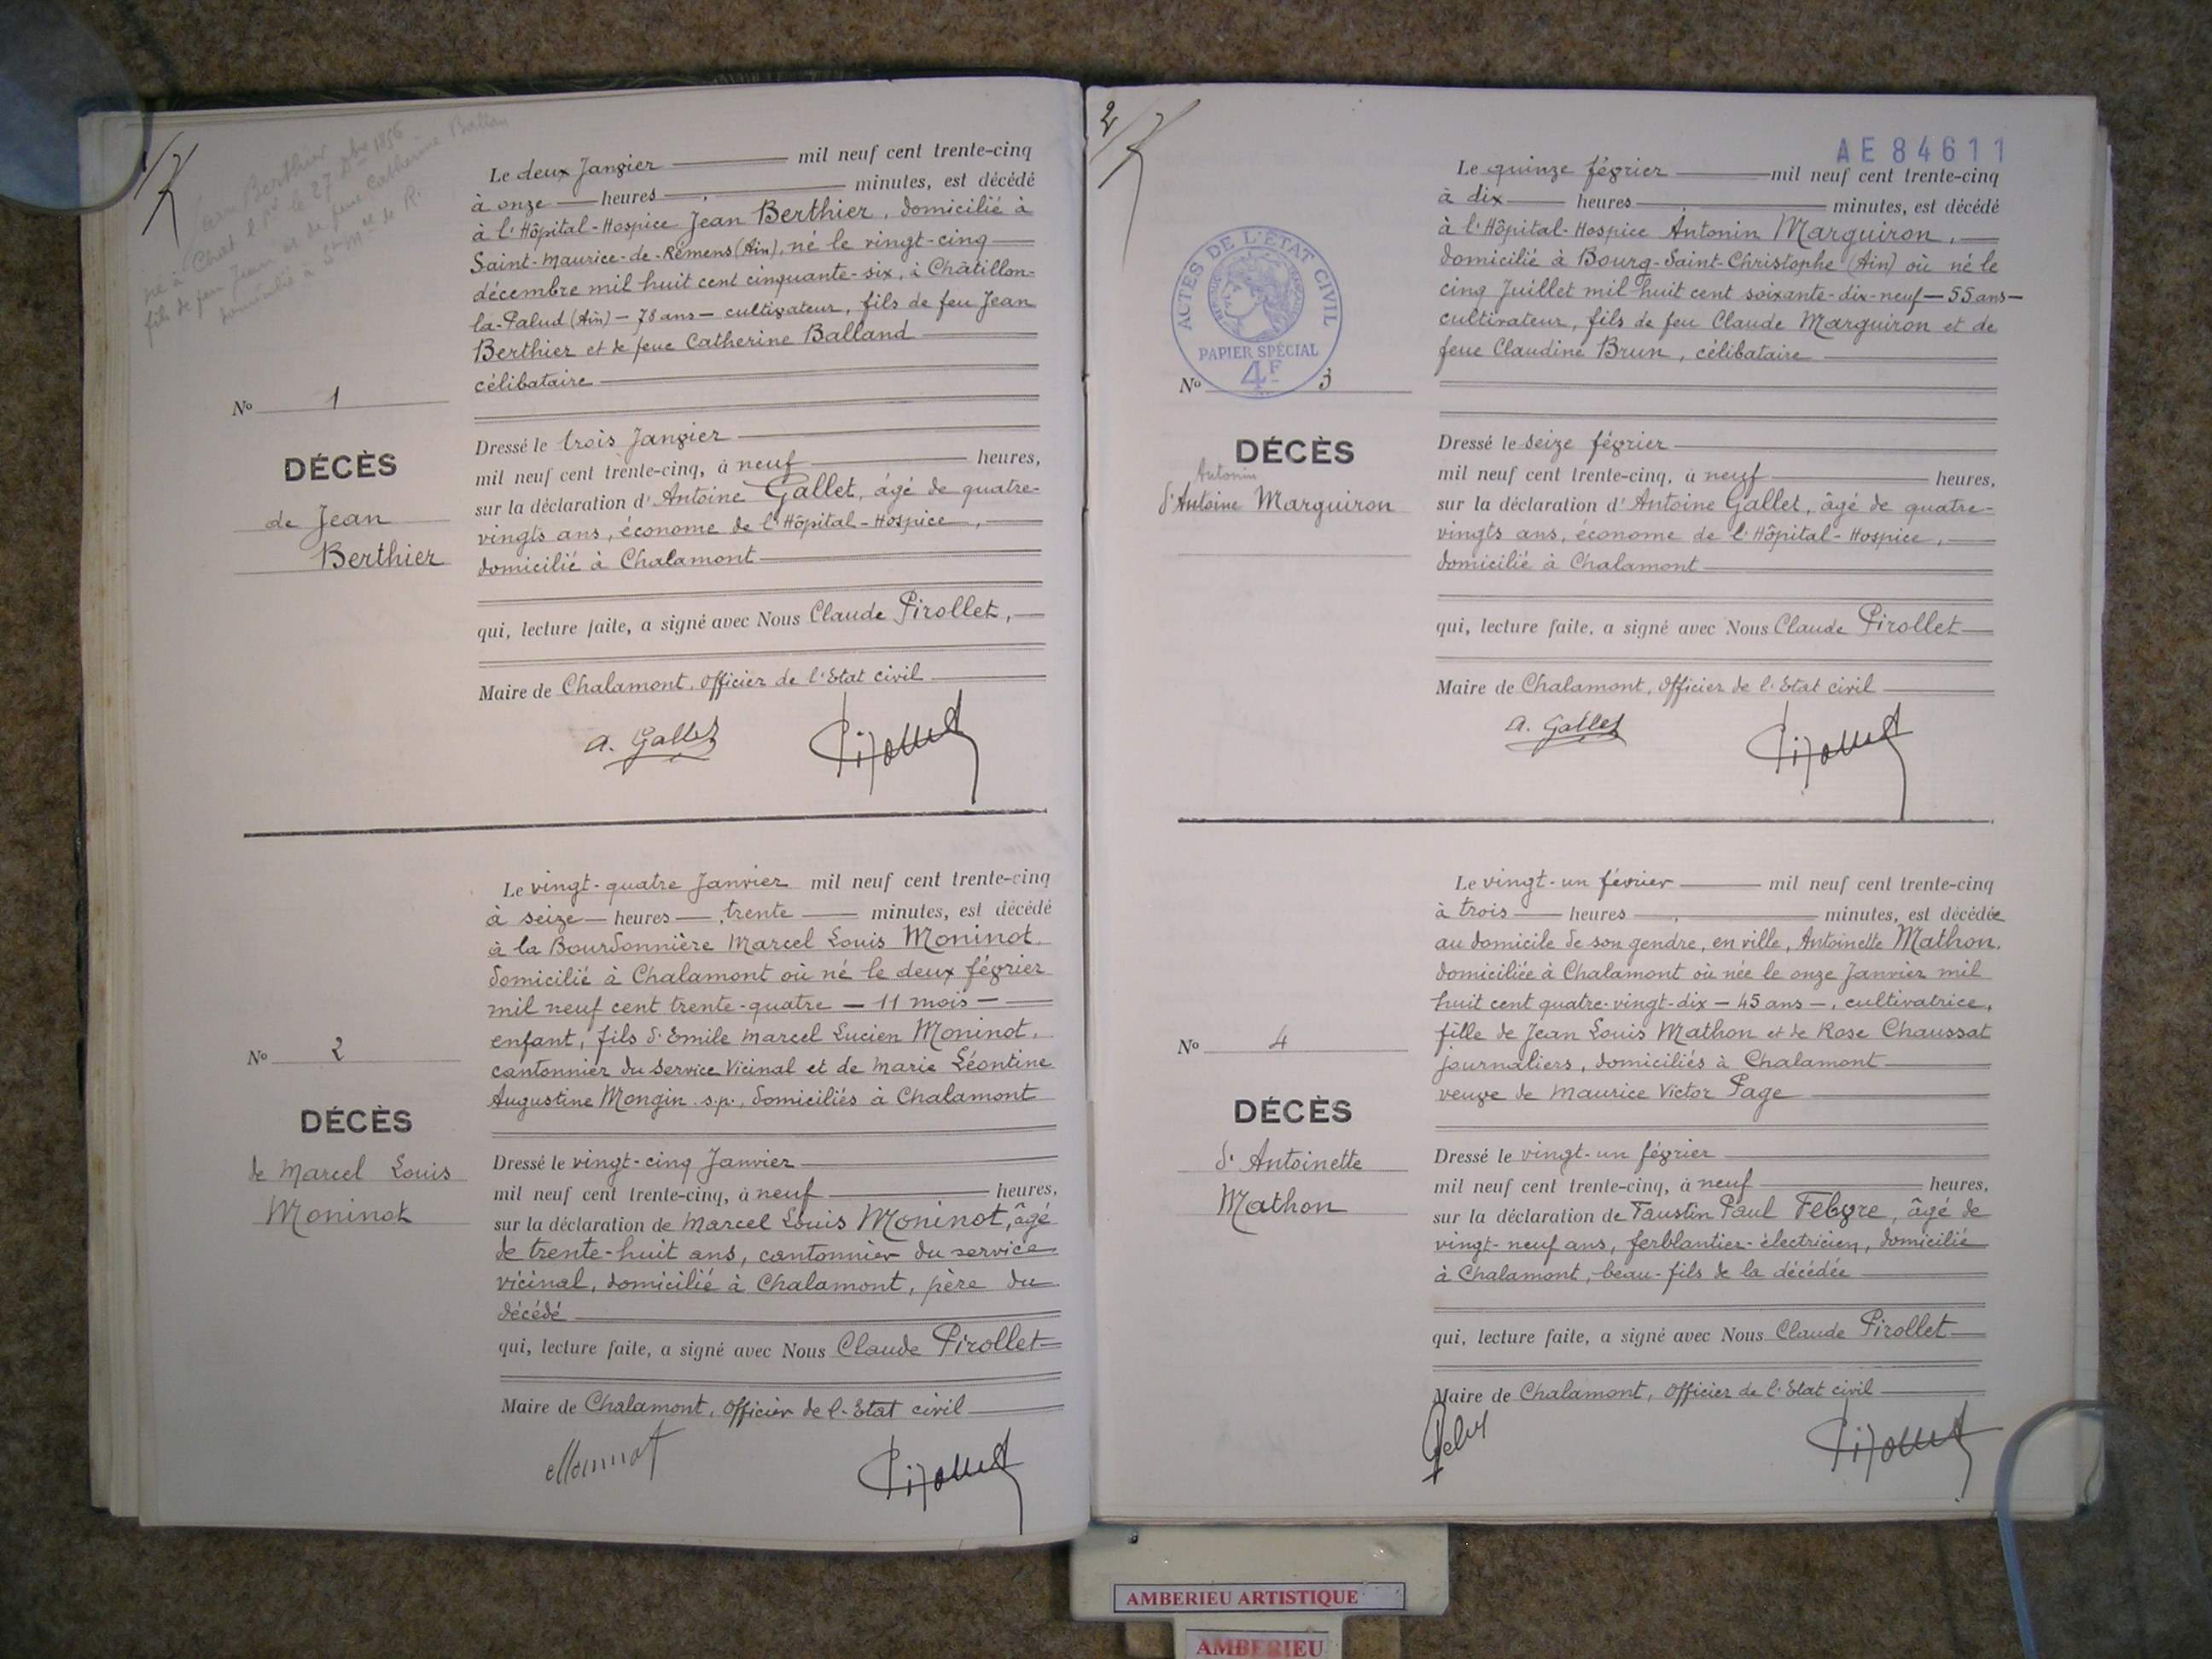 1/
Jean Berthier
né à Chat. l. pd le 27 Dbre 1856
fils de feu Jean et de feue Catherine Ballan
domicilié à St Mce de R.
Le deux Janvier mil neuf cent trente-cinq
à onze heures minutes, est décédé
à l'Hôpital-Hospice Jean Berthier, domicilié à
Saint-Maurice-de-Rémens (Ain), né le vingt-cinq
décembre mil huit cent cinquante-six, à Châtillon-
la-Palud (Ain) — 78 ans — cultivateur, fils de feu Jean
Berthier et de feue Catherine Balland
célibataire
No 1
DÉCÈS
de Jean
Berthier
Dressé le trois Janvier
mil neuf cent trente-cinq, à neuf heures,
sur la déclaration d'Antoine Gallet, âgé de quatre-
vingts ans, économe de l'Hôpital-Hospice,
domicilié à Chalamont
qui, lecture faite, a signé avec Nous Claude Pirollet,
Maire de Chalamont, Officier de l'Etat civil
A. Gallet Pirollet
Le vingt-quatre Janvier mil neuf cent trente-cinq
à seize heures trente minutes, est décédé
à la Bourdonnière Marcel Louis Moninot,
domicilié à Chalamont où né le deux février
mil neuf cent trente-quatre — 11 mois —
enfant, fils d'Emile Marcel Lucien Moninot,
cantonnier du Service Vicinal et de Marie Léontine
Augustine Mongin s.p., domiciliés à Chalamont
No 2
DÉCÈS
de Marcel Louis
Moninot
Dressé le vingt-cinq Janvier
mil neuf cent trente-cinq, à neuf heures,
sur la déclaration de Marcel Louis Moninot, âgé
de trente-huit ans, cantonnier du service
vicinal, domicilié à Chalamont, père du
décédé
qui, lecture faite, a signé avec Nous Claude Pirollet
Maire de Chalamont, Officier de l'Etat civil
Moninot Pirollet
2/
AE 84611
Le quinze février mil neuf cent trente-cinq
à dix heures minutes, est décédé
à l'Hôpital-Hospice Antonin Marguiron,
domicilié à Bourg-Saint-Christophe (Ain) où né le
cinq Juillet mil huit cent soixante-dix-neuf — 55 ans —
cultivateur, fils de feu Claude Marguiron et de
feue Claudine Brun, célibataire
ACTES DE L'ÉTAT CIVIL
RÉPUBLIQUE FRANÇAISE
PAPIER SPÉCIAL
4F
No 3
DÉCÈS
Antonin
d'Antoine Marguiron
Dressé le seize février
mil neuf cent trente-cinq, à neuf heures,
sur la déclaration d'Antoine Gallet, âgé de quatre-
vingts ans, économe de l'Hôpital-Hospice,
domicilié à Chalamont
qui, lecture faite, a signé avec Nous Claude Pirollet
Maire de Chalamont, Officier de l'Etat civil
A. Gallet Pirollet
Le vingt-un février mil neuf cent trente-cinq
à trois heures minutes, est décédée
au domicile de son gendre, en ville, Antoinette Mathon,
domiciliée à Chalamont où née le onze Janvier mil
huit cent quatre-vingt-dix — 45 ans —, cultivatrice,
fille de Jean Louis Mathon et de Rose Chaussat
journaliers, domiciliés à Chalamont
veuve de Maurice Victor Page
No 4
DÉCÈS
d'Antoinette
Mathon
Dressé le vingt-un février
mil neuf cent trente-cinq, à neuf heures,
sur la déclaration de Faustin Paul Febvre, âgé de
vingt-neuf ans, ferblantier-électricien, domicilié
à Chalamont, beau-fils de la décédée
qui, lecture faite, a signé avec Nous Claude Pirollet
Maire de Chalamont, Officier de l'Etat civil
Pirollet
AMBERIEU ARTISTIQUE
AMBERIEU